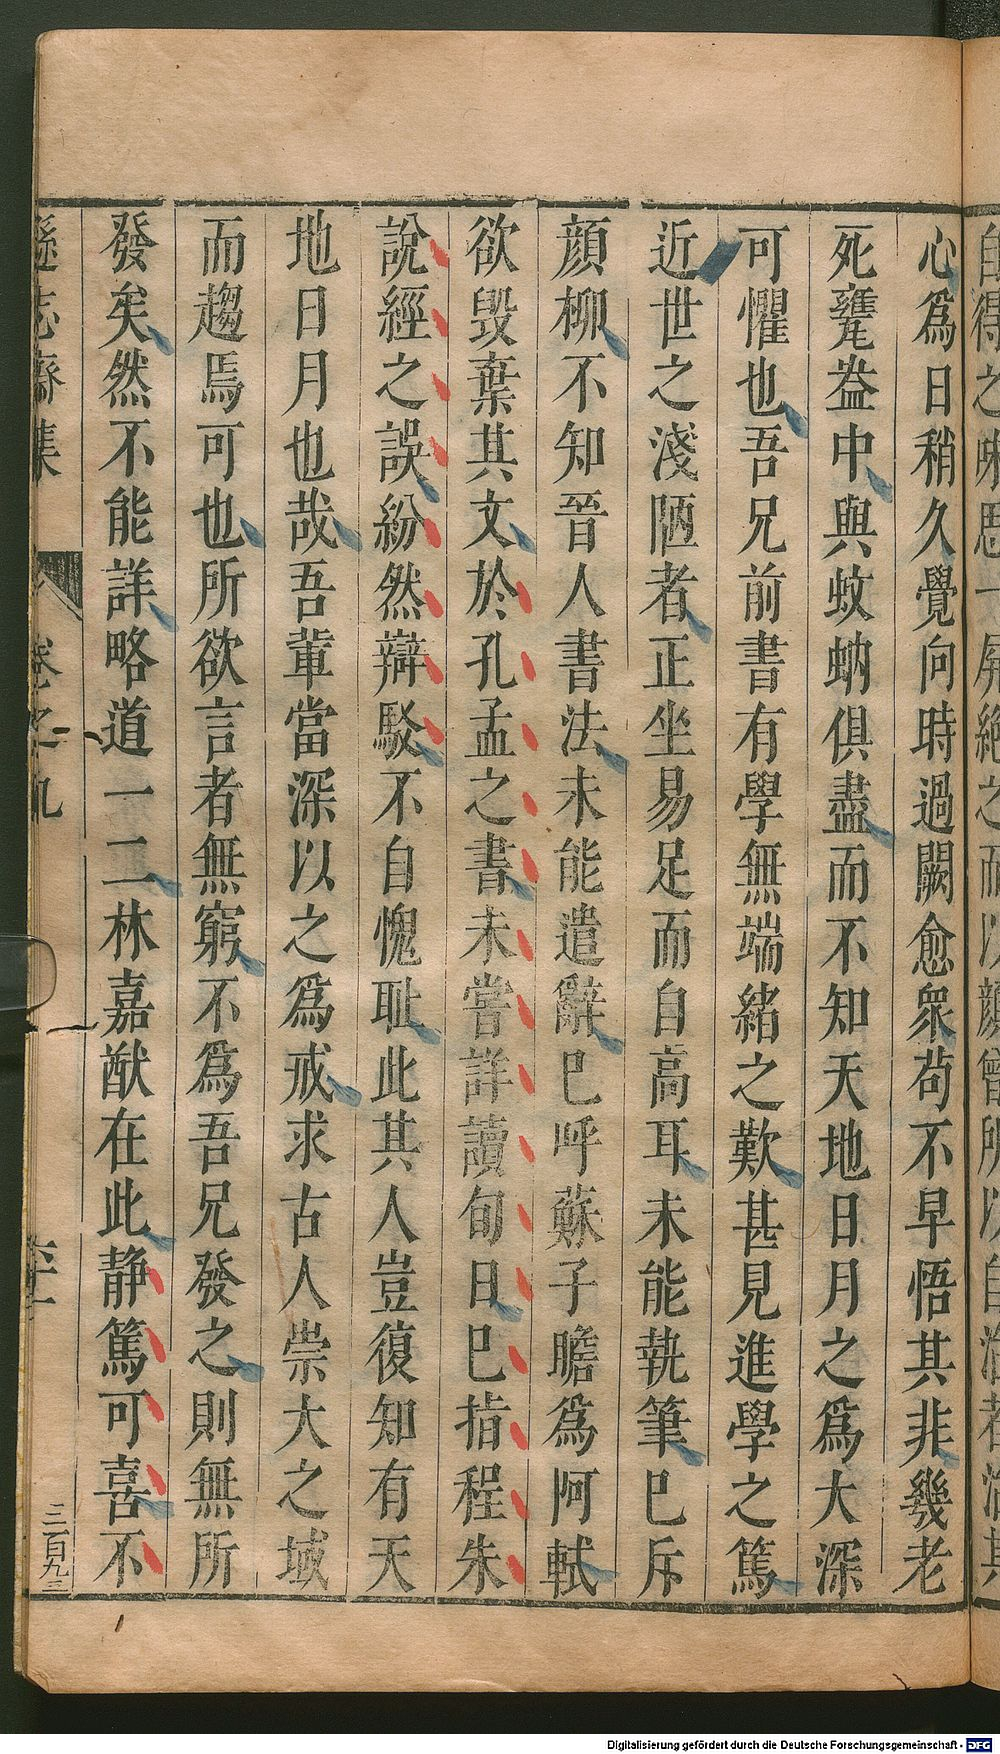 心爲日稍久覺向時過闕愈衆茍不早悟其非幾老
死甕盎中與蚊蚋俱盡而不知天地日月之爲大深
可懼也吾兄前書有學無端緒之歎甚見進學之篤
近世之淺陋者正坐易足而自高耳未能執筆巳斥
顔柳不知晉人書法未能遣辭巳呼蘇子瞻爲阿軾
欲毁棄其文於孔孟之書未嘗詳讀旬日巳指程朱
說經之誤紛然辯駁不自愧耻此其人豈復知有天
地日月也哉吾軰當深以之爲戒求古人崇大之域
而趨焉可也所欲言者無窮不爲吾兄發之則無所
發矣然不能詳略道一二林嘉猷在此静篤可喜不
遜志齋集 卷之九
三百九三
Digitalisierung gefördert durch die Deutsche Forschungsgemeinschaft - DFG